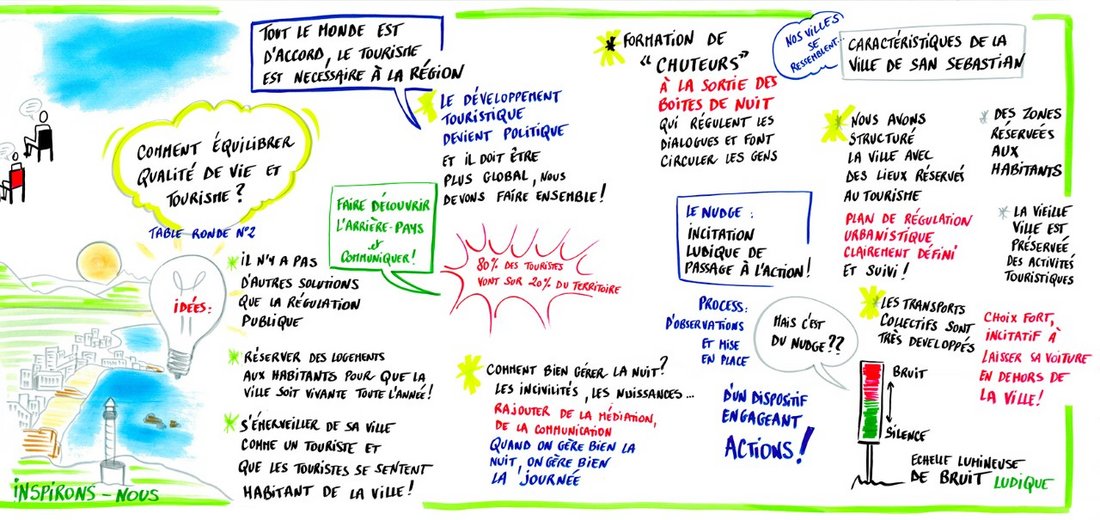 TOUT LE MONDE EST
D'ACCORD, LE TOURISME
EST NECESSAIRE À LA RÉGION
COMMENT ÉQUILIBRER
QUALITÉ DE VIE ET
TOURISME ?
TABLE RONDE N°2
IDÉES :
LE DÉVELOPPEMENT
TOURISTIQUE
DEVIENT POLITIQUE
ET IL DOIT ÊTRE
PLUS GLOBAL, NOUS
DEVONS FAIRE ENSEMBLE !
FAIRE DÉCOUVRIR
L'ARRIÈRE-PAYS
et
COMMUNIQUER !
IL N'Y A PAS
D'AUTRES SOLUTIONS
QUE LA RÉGULATION
PUBLIQUE
RÉSERVER DES LOGEMENTS
AUX HABITANTS POUR QUE LA
VILLE SOIT VIVANTE TOUTE L'ANNÉE !
S'ÉMERVEILLER DE SA VILLE
COMME UN TOURISTE ET
QUE LES TOURISTES SE SENTENT
HABITANT DE LA VILLE !
INSPIRONS-NOUS
80% DES TOURISTES
VONT SUR 20% DU TERRITOIRE
COMMENT BIEN GÉRER LA NUIT ?
LES INCIVILITÉS, LES NUISSANCES...
RAJOUTER DE LA MÉDIATION,
DE LA COMMUNICATION
QUAND ON GÈRE BIEN LA
NUIT, ON GÈRE BIEN
LA JOURNÉE
FORMATION DE
"CHUTEURS"
À LA SORTIE DES
BOITES DE NUIT
QUI RÉGULENT LES
DIALOGUES ET FONT
CIRCULER LES GENS
LE NUDGE :
INCITATION
LUDIQUE DE
PASSAGE À L'ACTION !
PROCESS :
D'OBSERVATIONS
ET MISE
EN PLACE
D'UN DISPOSITIF
ENGAGEANT
ACTIONS !
MAIS C'EST
DU NUDGE ??
NOS VILLES
SE
RESSEMBLENT...
CARACTÉRISTIQUES DE LA
VILLE DE SAN SEBASTIAN
NOUS AVONS
STRUCTURÉ
LA VILLE AVEC
DES LIEUX RÉSERVÉS
AU TOURISME
PLAN DE RÉGULATION
URBANISTIQUE
CLAIREMENT DÉFINI
ET SUIVI !
DES ZONES
RÉSERVÉES
AUX
HABITANTS
LA VIEILLE
VILLE EST
PRÉSERVÉE
DES ACTIVITÉS
TOURISTIQUES
LES TRANSPORTS
COLLECTIFS SONT
TRÈS DEVELOPPÉS
CHOIX FORT,
INCITATIF À
LAISSER SA VOITURE
EN DEHORS DE
LA VILLE !
BRUIT
SILENCE
ECHELLE LUMINEUSE
DE BRUIT LUDIQUE